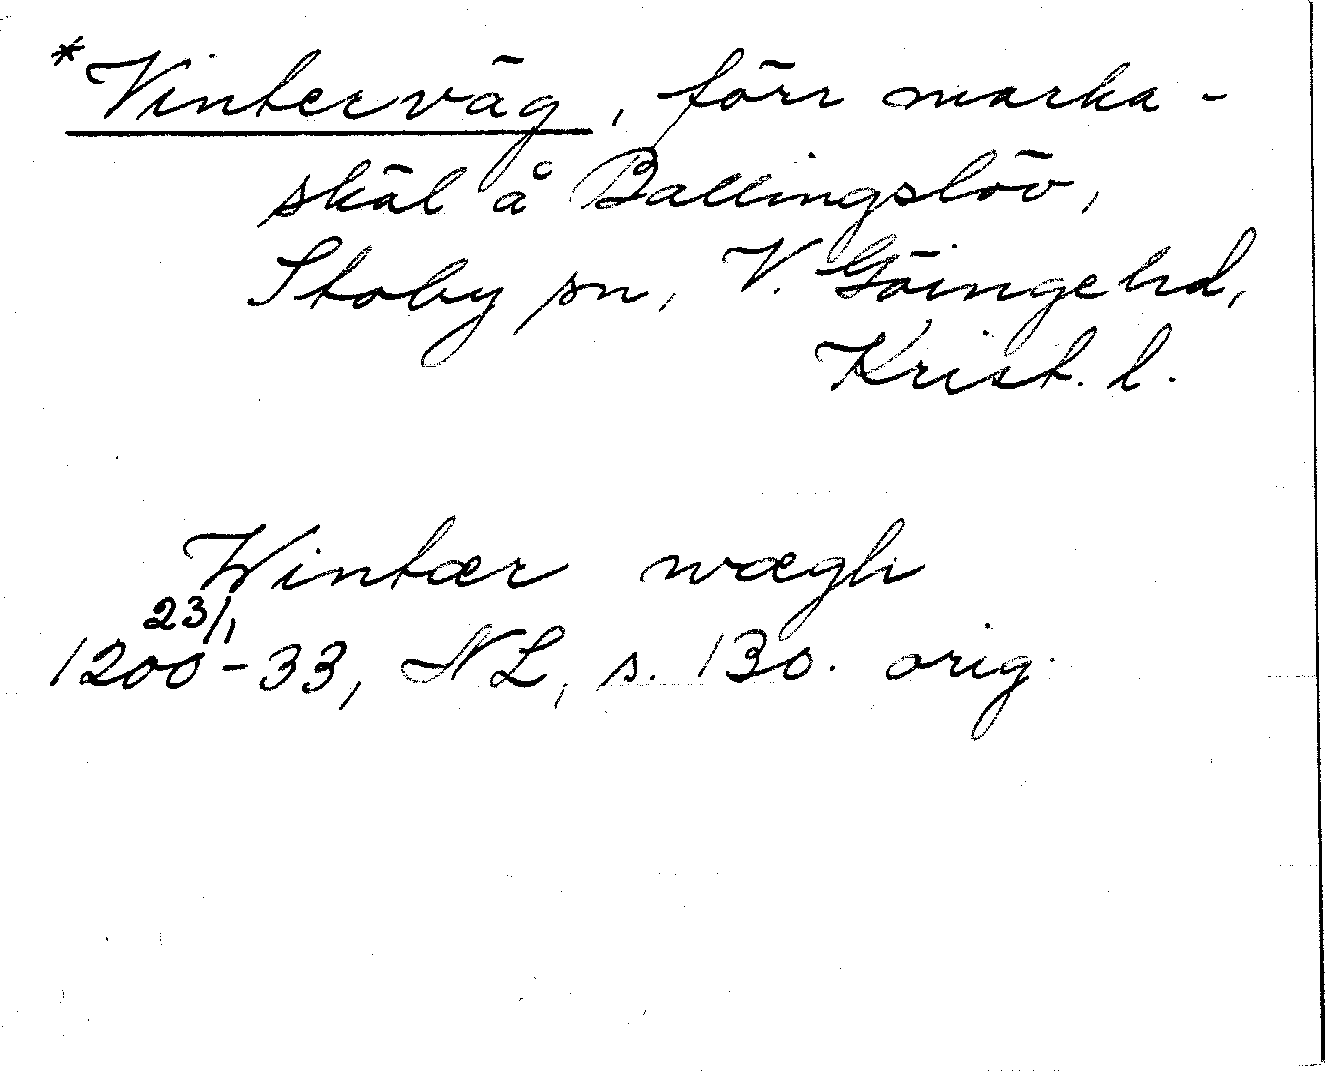 *Vinterväg, förr marka-
skäl å Ballingslöv,
Stoby sn, V. Göinge hd,
Krist. l.
Wintær wægh
23/1
1200-33, NL, s. 130. orig.